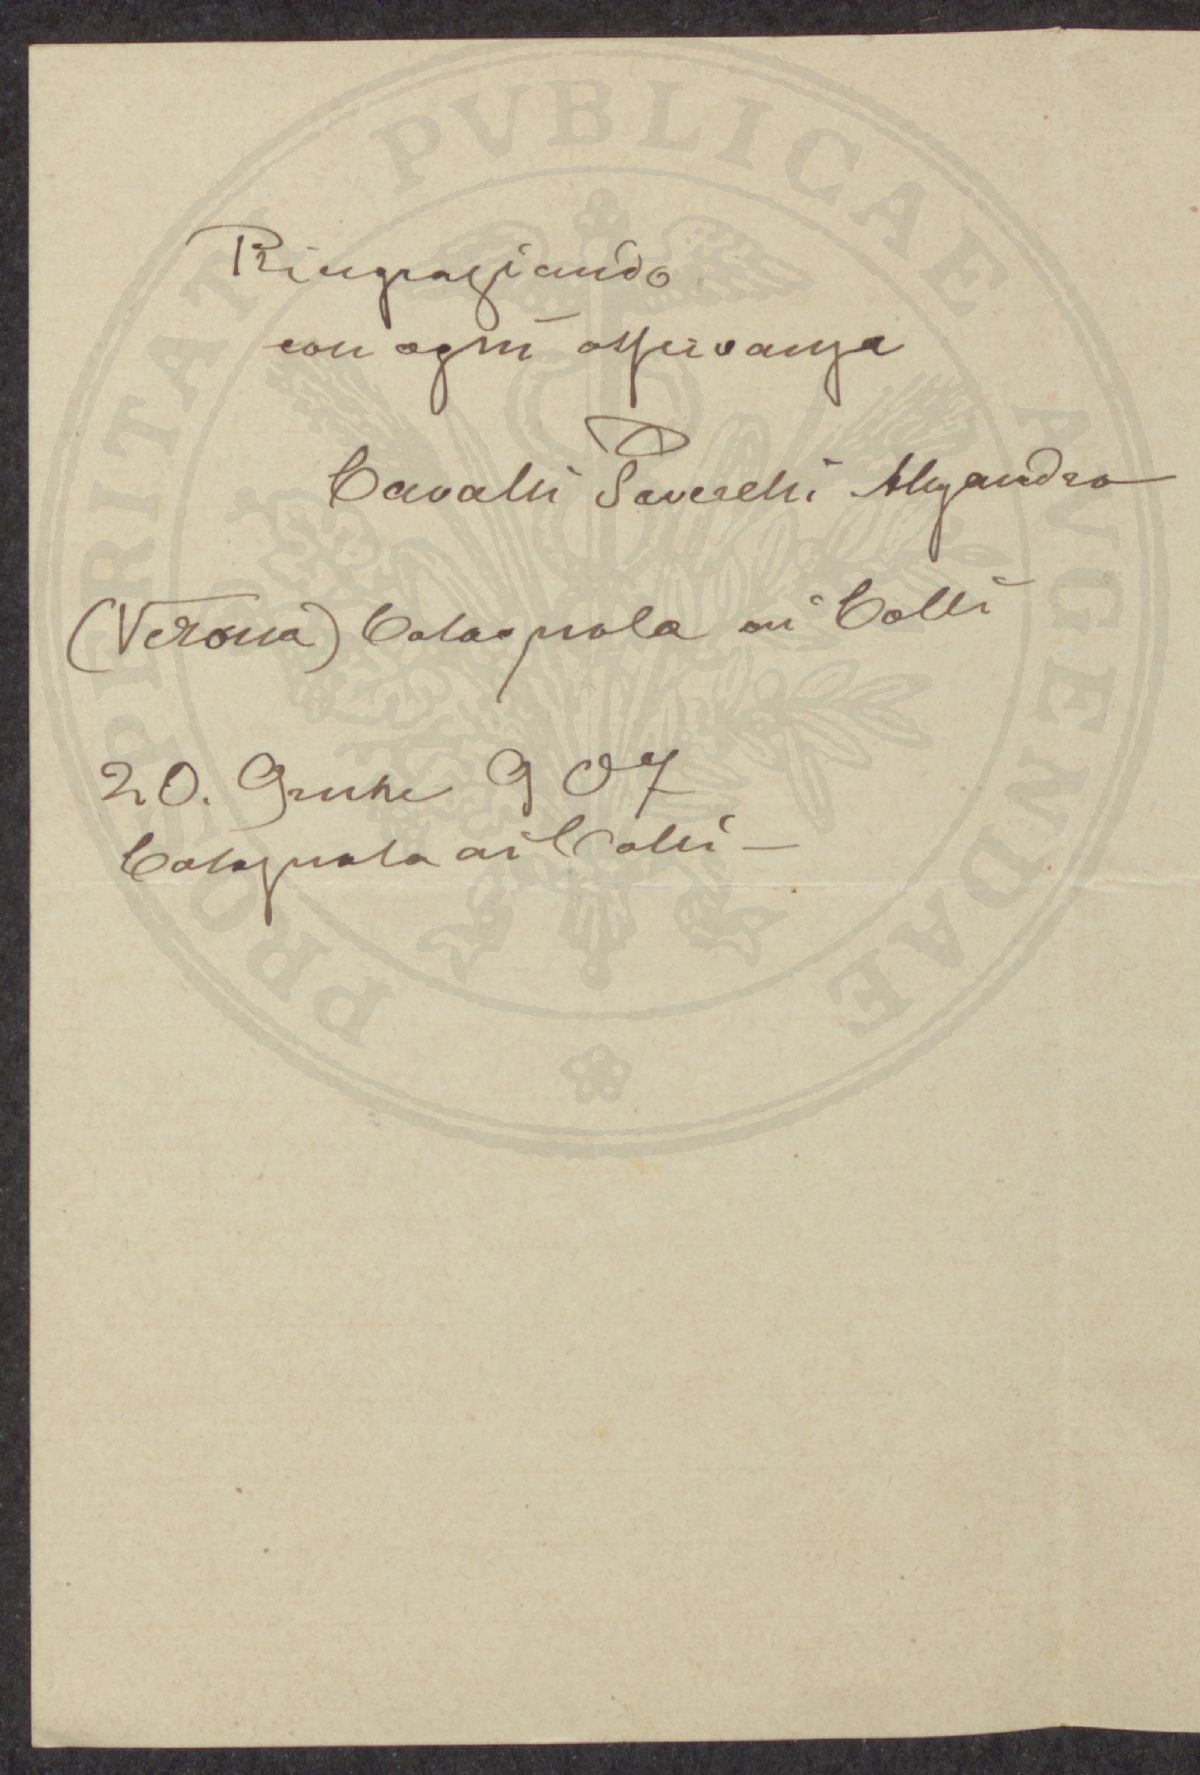 Ringraziando
con ogni osservanza
Cavalli Alessandro
(Verona) Colognola ai Colli
20. 907
Colognola ai Colli —
PROSPERITATI PVBLICAE AVGENDAE